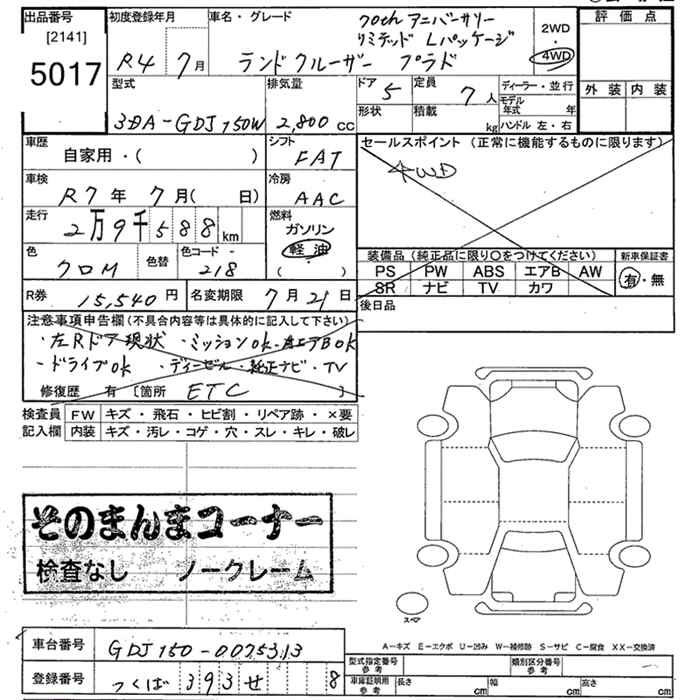 出品番号
[2141]
5017
初度登録年月
R4 7月
車名・グレード
70th アニバーサリー
リミテッド Lパッケージ
ランドクルーザー プラド
2WD
・
4WD
評価点
外装 内装
型式
3DA-GDJ150W
排気量
2,800 cc
ドア 5
形状
定員 7人
積載 kg
ディーラー・並行
モデル年式 年
ハンドル 左・右
車歴
自家用・( )
シフト
FAT
車検
R7年 7月( 日)
冷房
AAC
走行
2万9千588km
燃料
ガソリン
軽油
( )
色
クロM
色替
色コード
218
R券 15,540円
名変期限 7月21日
セールスポイント (正常に機能するものに限ります)
4WD
装備品 (純正品に限り○をつけてください)
PS PW ABS エアB AW
SR ナビ TV カワ
新車保証書
有・無
後日品
注意事項申告欄(不具合内容等は具体的に記入して下さい)
・左Rドア現状 ・ミッションok
・ドライブok ・ディーゼル・純正ナビ・TV
修復歴 有 [箇所 ETC ]
検査員 FW キズ・飛石・ヒビ割・リペア跡・×要
記入欄 内装 キズ・汚レ・コゲ・穴・スレ・キレ・破レ
そのまんまコーナー
検査なし ノークレーム
スペア
A-キズ E-エクボ U-凹み W-補修跡 S-サビ C-腐食 XX-交換済
車台番号 GDJ150-0075313
登録番号 つくば 393 せ 8
型式指定番号 参考
類別区分番号 参考
車庫証明用 参考 長さ cm 幅 cm 高さ cm